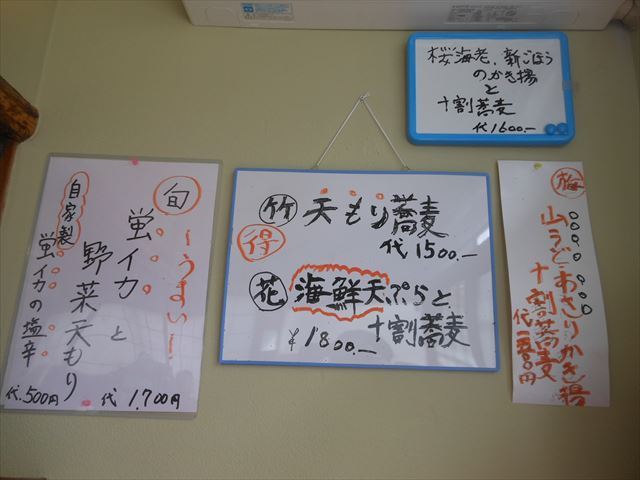 桜海老、新ごぼう
のかき揚
と
十割蕎麦
代1600.-
旬
〜うまい〜!
蛍イカ
と
野菜天もり
代 1,700円
自家製
蛍イカの塩辛
代.500円
竹 天もり蕎麦
得
代 1500.-
花 海鮮天ぷらと
十割蕎麦
¥1800.-
梅
山うどあさりかき揚
十割蕎麦